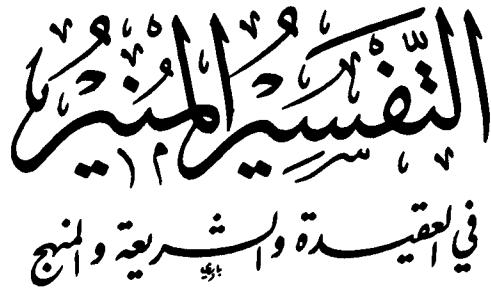 التَّفْسِيرُ الْمُنِيرُ
في العقيدة والشريعة والمنهج